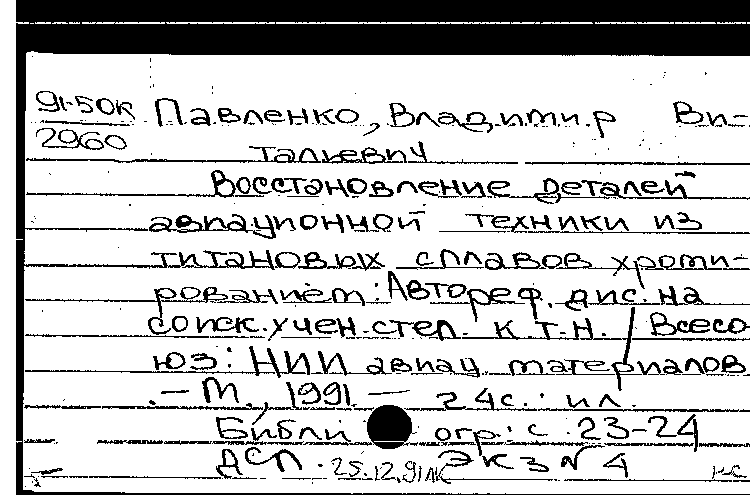 91-50к Павленко, Владимир Ви-
2960 тальевич
Восстановление деталей
авиационной техники из
титановых сплавов хроми-
рованием: Автореф. дис. на
соиск. учен. степ. к.т.н. / Всесо
юз: НИИ авиац. материалов
.— М., 1991 — 24с.: ил.
Библи огр.: с. 23-24
ДСП. 25.12.91 Экз N 4 нс